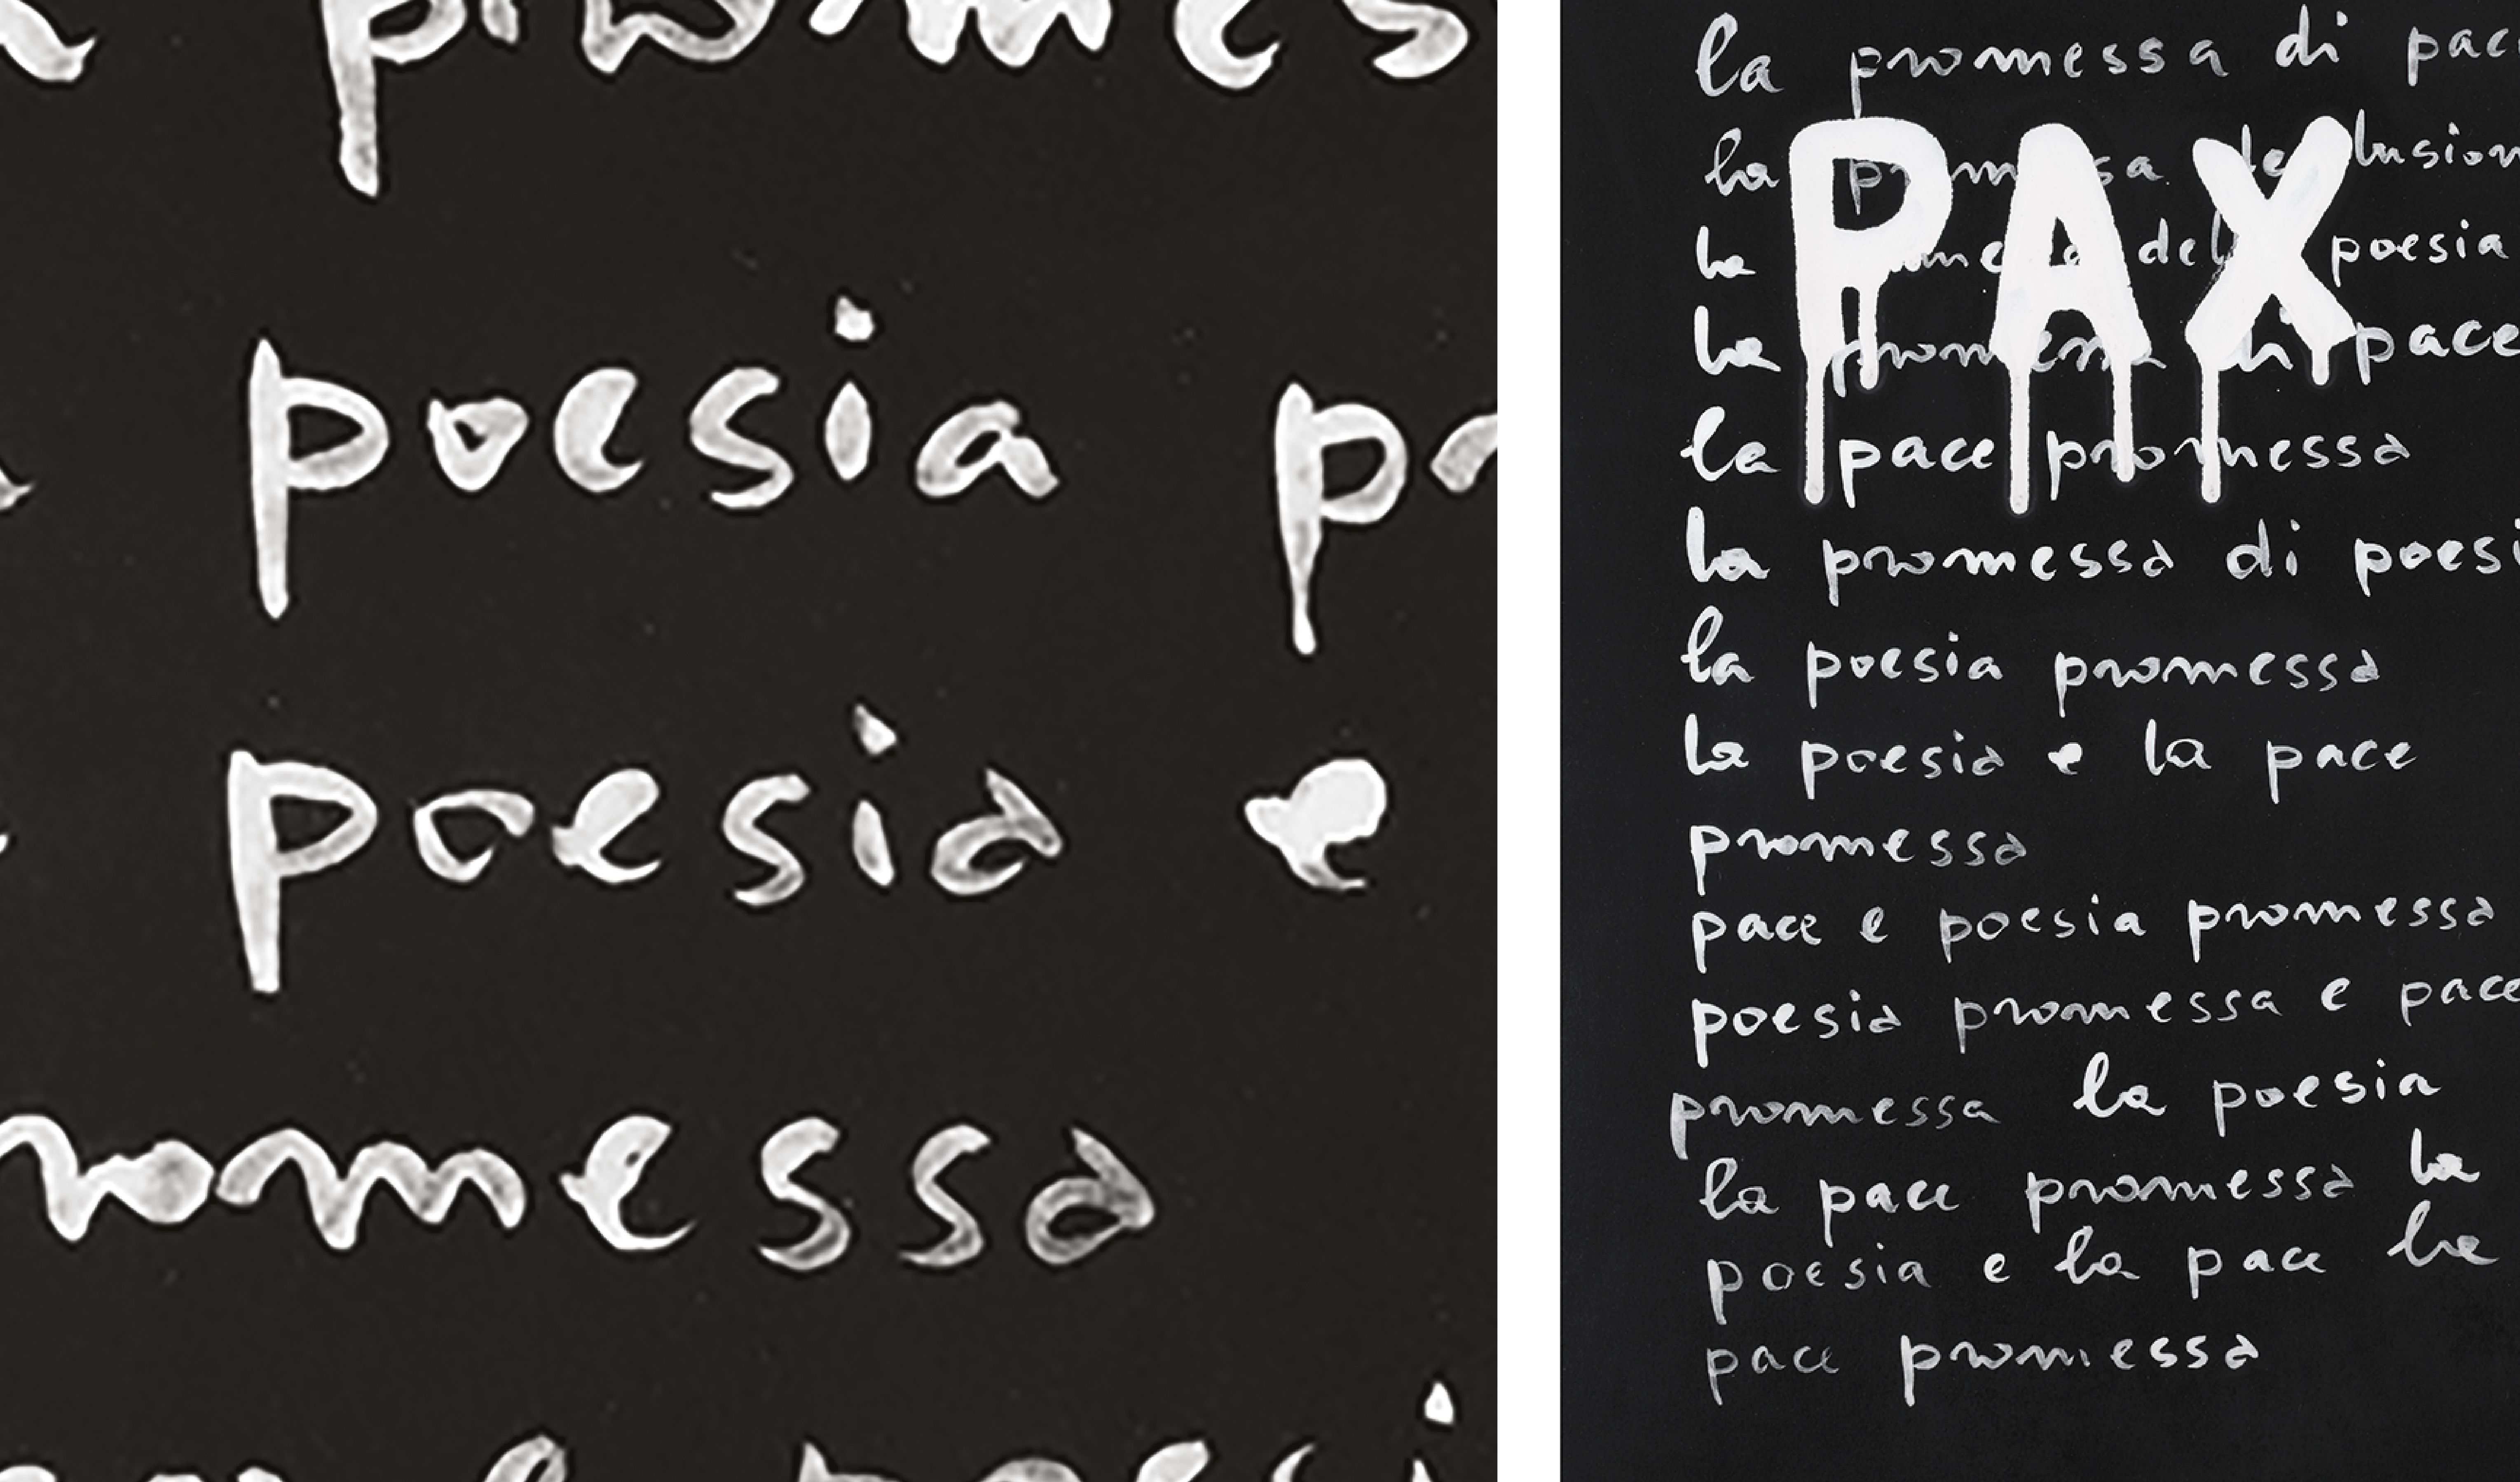 promes
poesia pr
poesia e
romessa
la promessa di pac
PAX
la lusion
la poesia
la promessa di pace
la pace promessa
la promessa di poesi
la poesia promessa
la poesia e la pace
promessa
pace e poesia promessa
poesia promessa e pace
promessa la poesia
la pace promessa la
poesia e la pace la
pace promessa